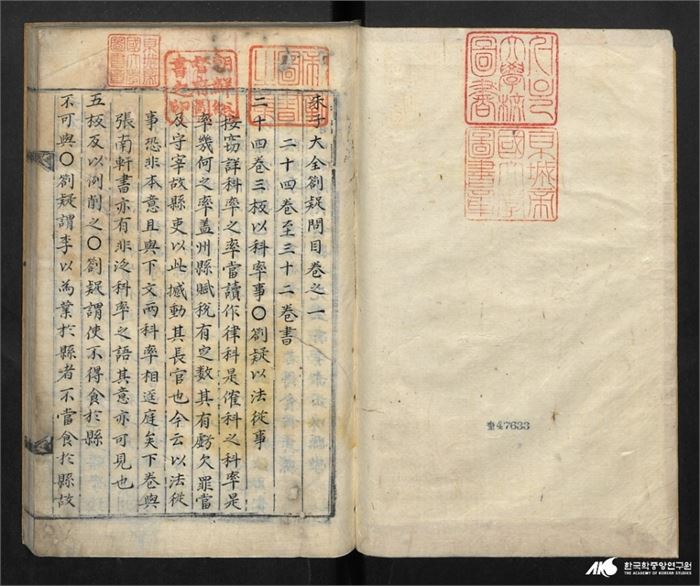 朱子大全劄疑問目卷之一
二十四卷至三十二卷書
二十四卷三板以科率事○劄疑以法從事
按竊詳科率之率當讀作律科是催科之科率是
率幾何之率盖州縣賦稅有定數其有虧欠罪當
及守宰故縣吏以此撼動其長官也今云以法從
事恐非本意且與下文兩科率相逕庭矣下卷與
張南軒書亦有非泛科率之語其意亦可見也
五板及以削之○劄疑謂使不得食於縣
不可與○劄疑謂李以爲業於縣者不當食於縣故
朝鮮總
督府圖
書之印
京城帝
國大學
圖書章
奎47633
AKS 한국학중앙연구원
THE ACADEMY OF KOREAN STUDIES